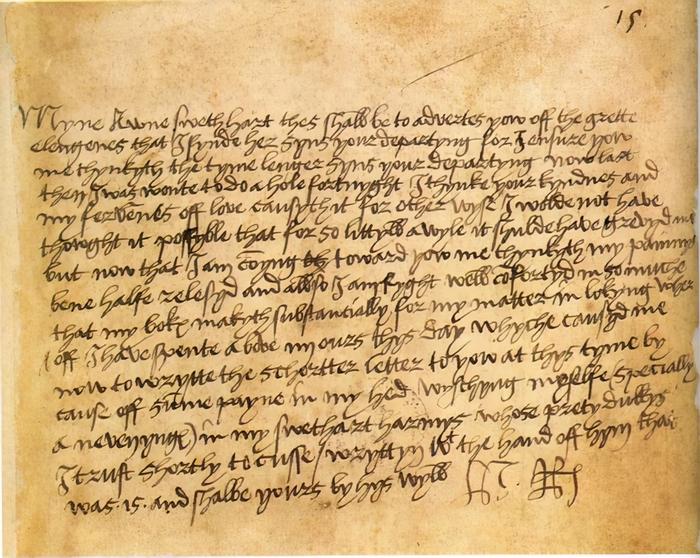 15
Myne awne swethhart thes shalbe to advertes yow off the grette
elengenes that I fynde her syns your departyng for I ensure yow
me thynkyth the tyme lenger syns your departyng now last
then I was wonte to do a hole fortnyght I thynke your kyndnes and
my fervenes off love causyth it for other wyse I wolde not have
thowght it possyble that for so littyll a wyle it shulde have grevyd me
but now that I am comyng toward yow me thynkyth my paynnys
bene halfe relesyd and allso I am ryght well cofortyd in so muche
that my boke makyth substancially for my matter in lokyng wher
off I have spente above iiii ours thys day whyche causyd me
now to wrytte the schortter letter to yow at thys tyme by
cause off summe payne in my hed wyschyng myselfe (specially
a nevenynge) in my swethart harmys whose prety dukkys
I trust shortly to cusse wryttyn wt the hand off hym that
was. is. and shalbe yours by hys wyll H. Rx